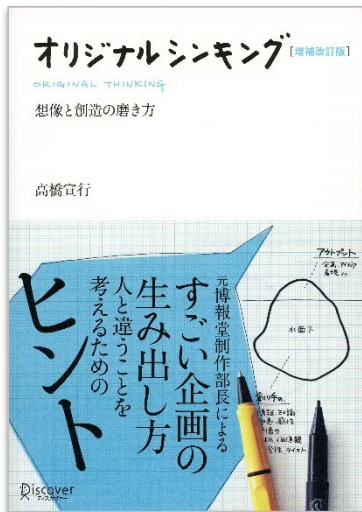 オリジナルシンキング［増補改訂版］
ORIGINAL THINKING
想像と創造の磨き方
高橋宣行
元博報堂制作部長による
すごい企画の
生み出し方
人と違うことを
考えるための
ヒント
アウトプット
水面下
Discover
ディスカヴァー